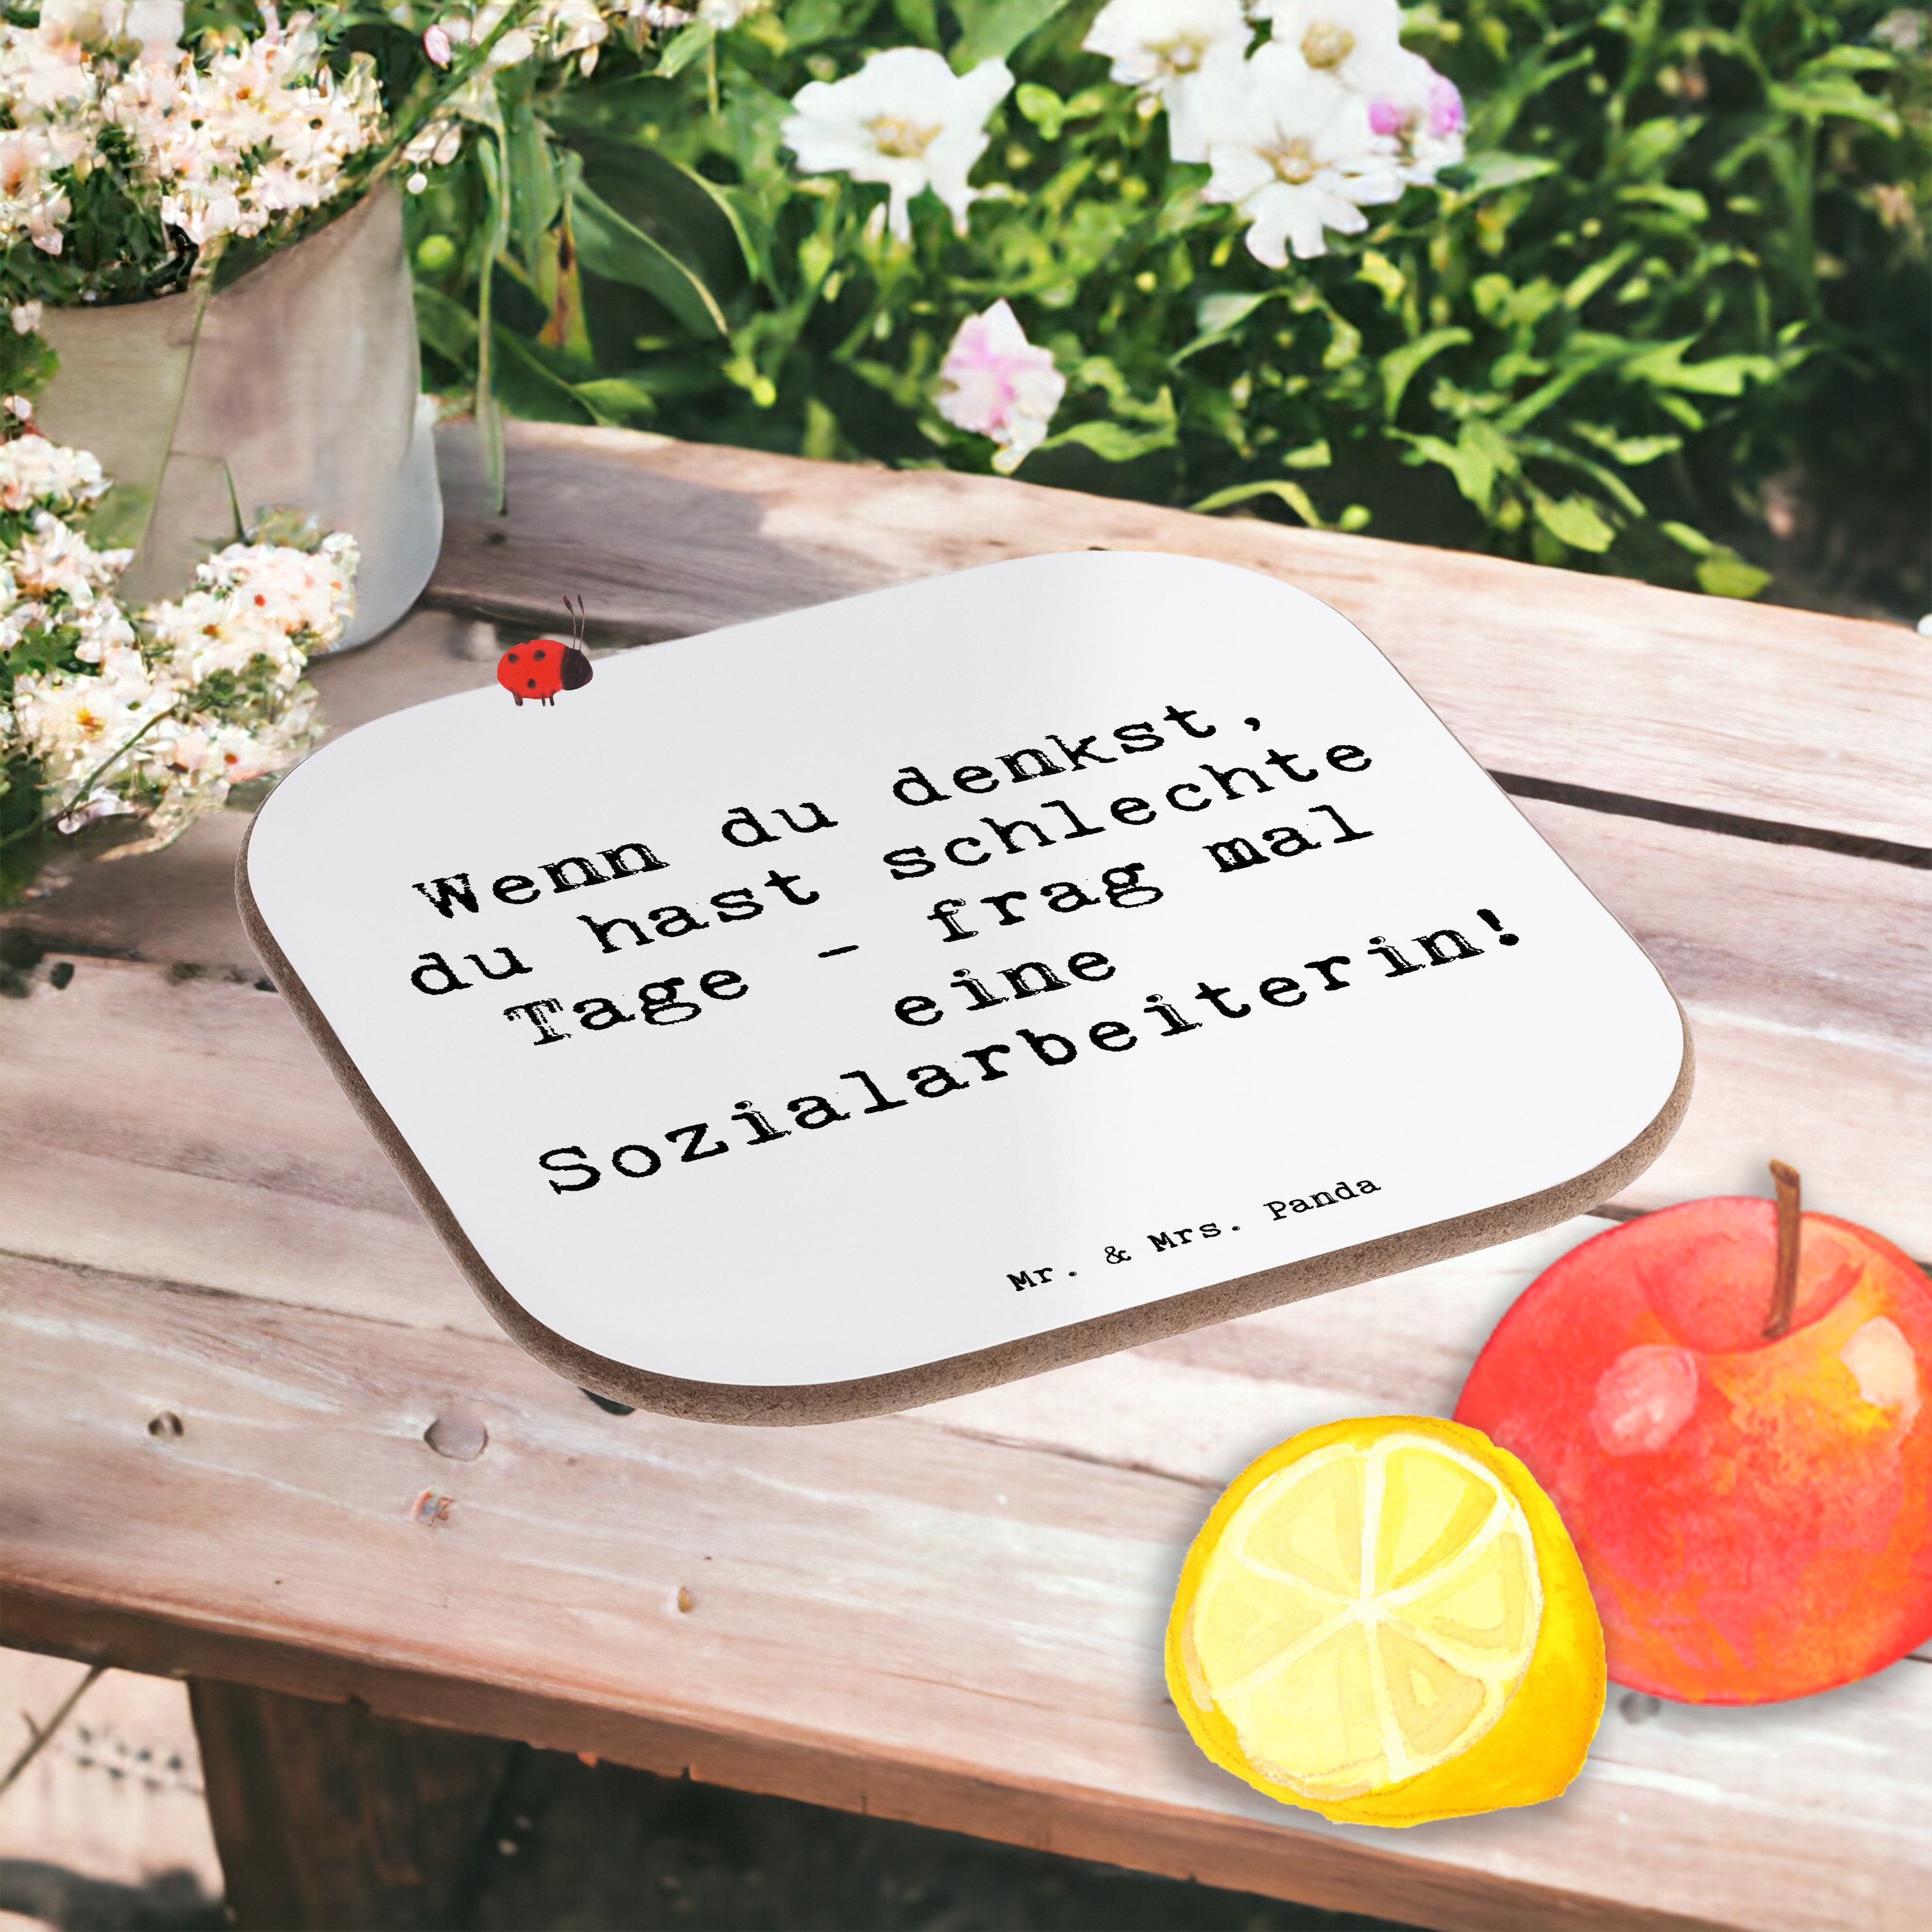 Wenn du denkst,
du hast schlechte
Tage - frag mal
eine
Sozialarbeiterin!
Mr. & Mrs. Panda